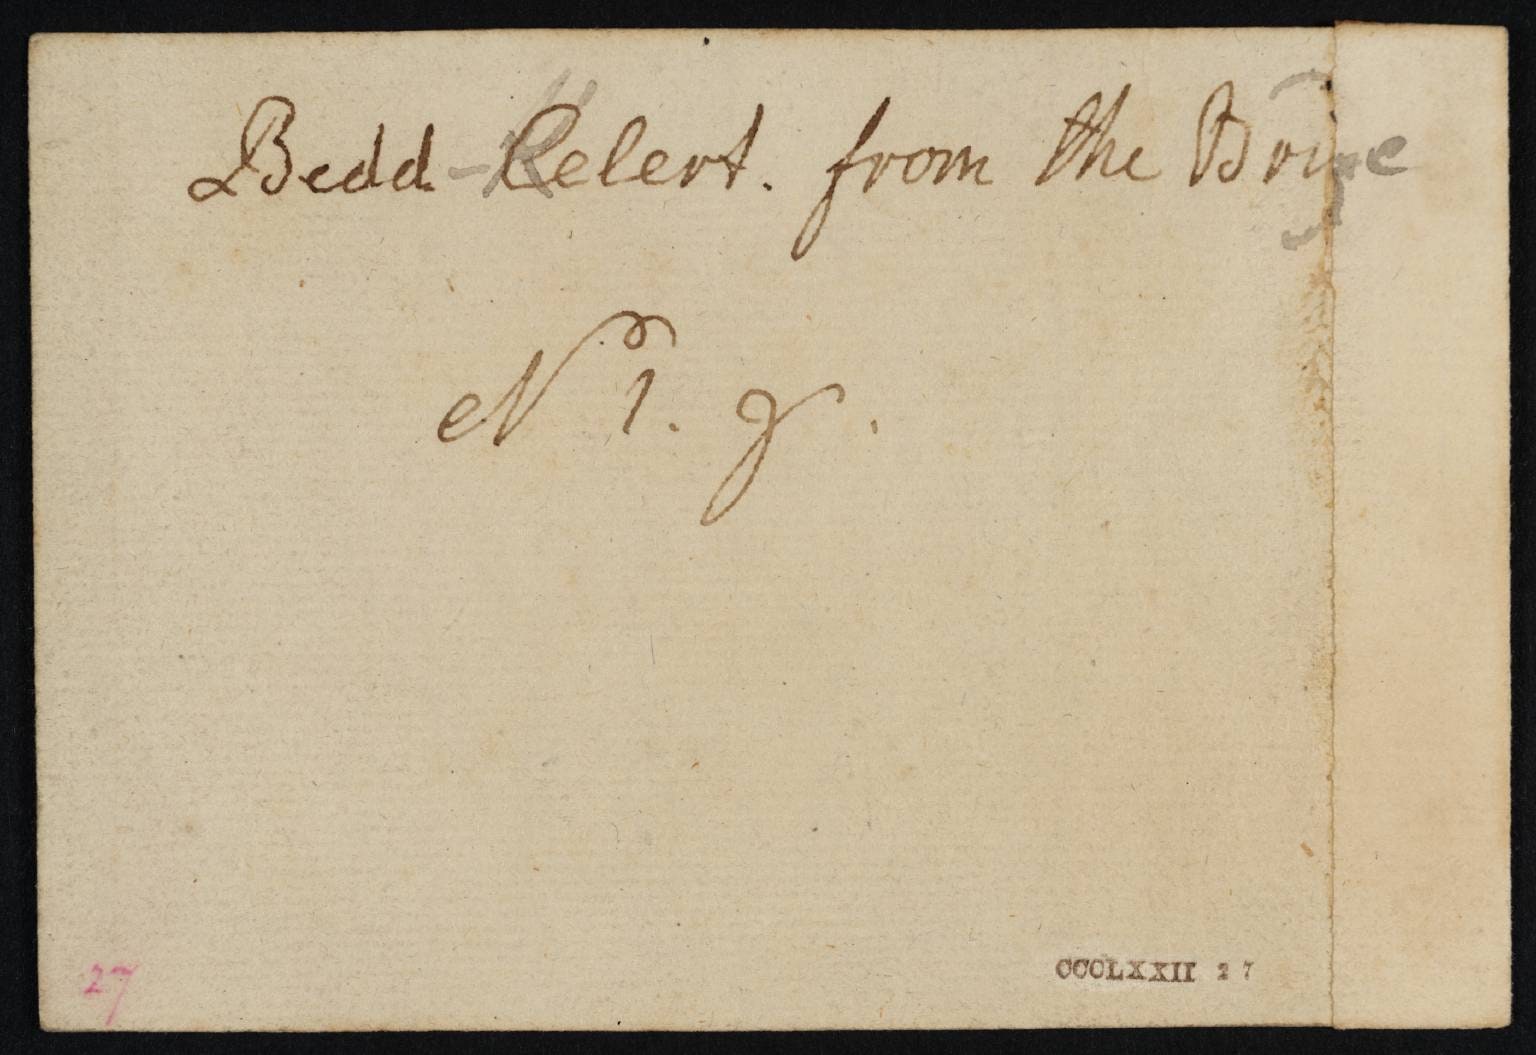 Bedd-Kelert. from the Brige
No 1. 9.
27
CCCLXXII 27